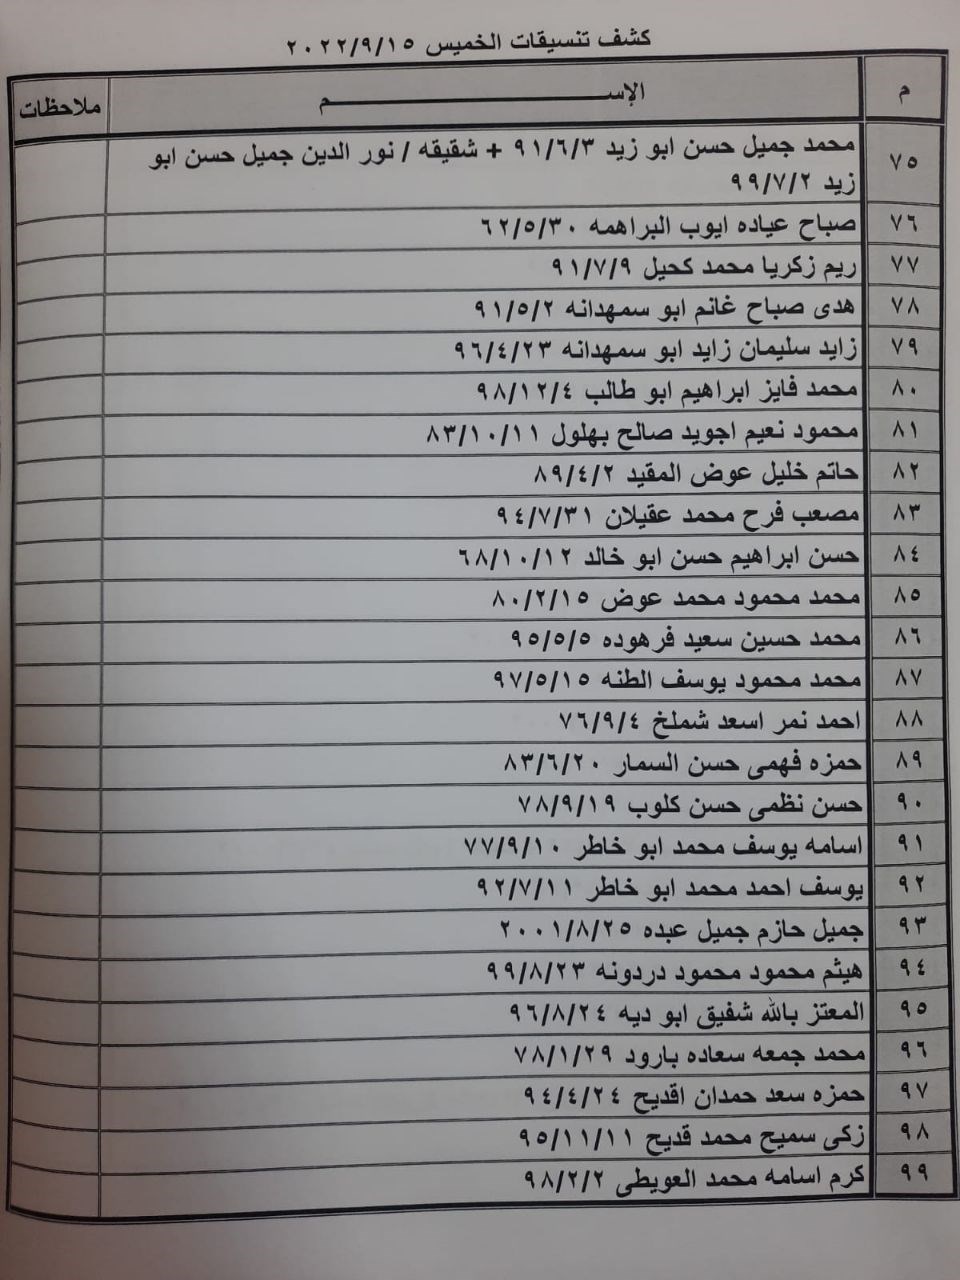 كشف تنسيقات الخميس ٢٠٢٢/٩/١٥
م الإســـم ملاحظات
٧٥ محمد جميل حسن ابو زيد ٩١/٦/٣ + شقيقه / نور الدين جميل حسن ابو
زيد ٩٩/٧/٢
٧٦ صباح عياده ايوب البراهمه ٦٢/٥/٣٠
٧٧ ريم زكريا محمد كحيل ٩١/٧/٩
٧٨ هدى صباح غانم ابو سمهدانه ٩١/٥/٢
٧٩ زايد سليمان زايد ابو سمهدانه ٩٦/٤/٢٣
٨٠ محمد فايز ابراهيم ابو طالب ٩٨/١٢/٤
٨١ محمود نعيم اجويد صالح بهلول ٨٣/١٠/١١
٨٢ حاتم خليل عوض المقيد ٨٩/٤/٢
٨٣ مصعب فرح محمد عقيلان ٩٤/٧/٣١
٨٤ حسن ابراهيم حسن ابو خالد ٦٨/١٠/١٢
٨٥ محمد محمود محمد عوض ٨٠/٢/١٥
٨٦ محمد حسين سعيد فرهوده ٩٥/٥/٥
٨٧ محمد محمود يوسف الطنه ٩٧/٥/١٥
٨٨ احمد نمر اسعد شملخ ٧٦/٩/٤
٨٩ حمزه فهمى حسن السمار ٨٣/٦/٢٠
٩٠ حسن نظمى حسن كلوب ٧٨/٩/١٩
٩١ اسامه يوسف محمد ابو خاطر ٧٧/٩/١٠
٩٢ يوسف احمد محمد ابو خاطر ٩٢/٧/١١
٩٣ جميل حازم جميل عبده ٢٠٠١/٨/٢٥
٩٤ هيثم محمود محمود دردونه ٩٩/٨/٢٣
٩٥ المعتز بالله شفيق ابو ديه ٩٦/٨/٢٤
٩٦ محمد جمعه سعاده بارود ٧٨/١/٢٩
٩٧ حمزه سعد حمدان اقديح ٩٤/٤/٢٤
٩٨ زكى سميح محمد قديح ٩٥/١١/١١
٩٩ كرم اسامه محمد العويطى ٩٨/٢/٢